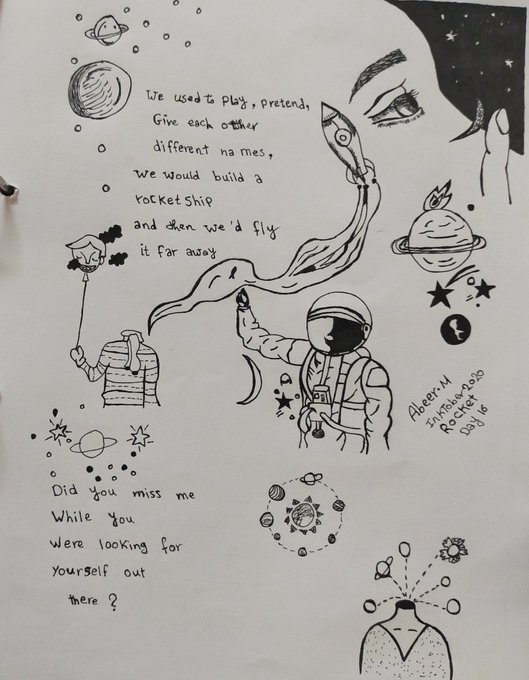 We used to play, pretend,
Give each other
different names,
We would build a
rocketship
and then we'd fly
it far away
Abeer.M
Inktober 2020
Rocket
Day 16
Did you miss me
While you
were looking for
yourself out
there?